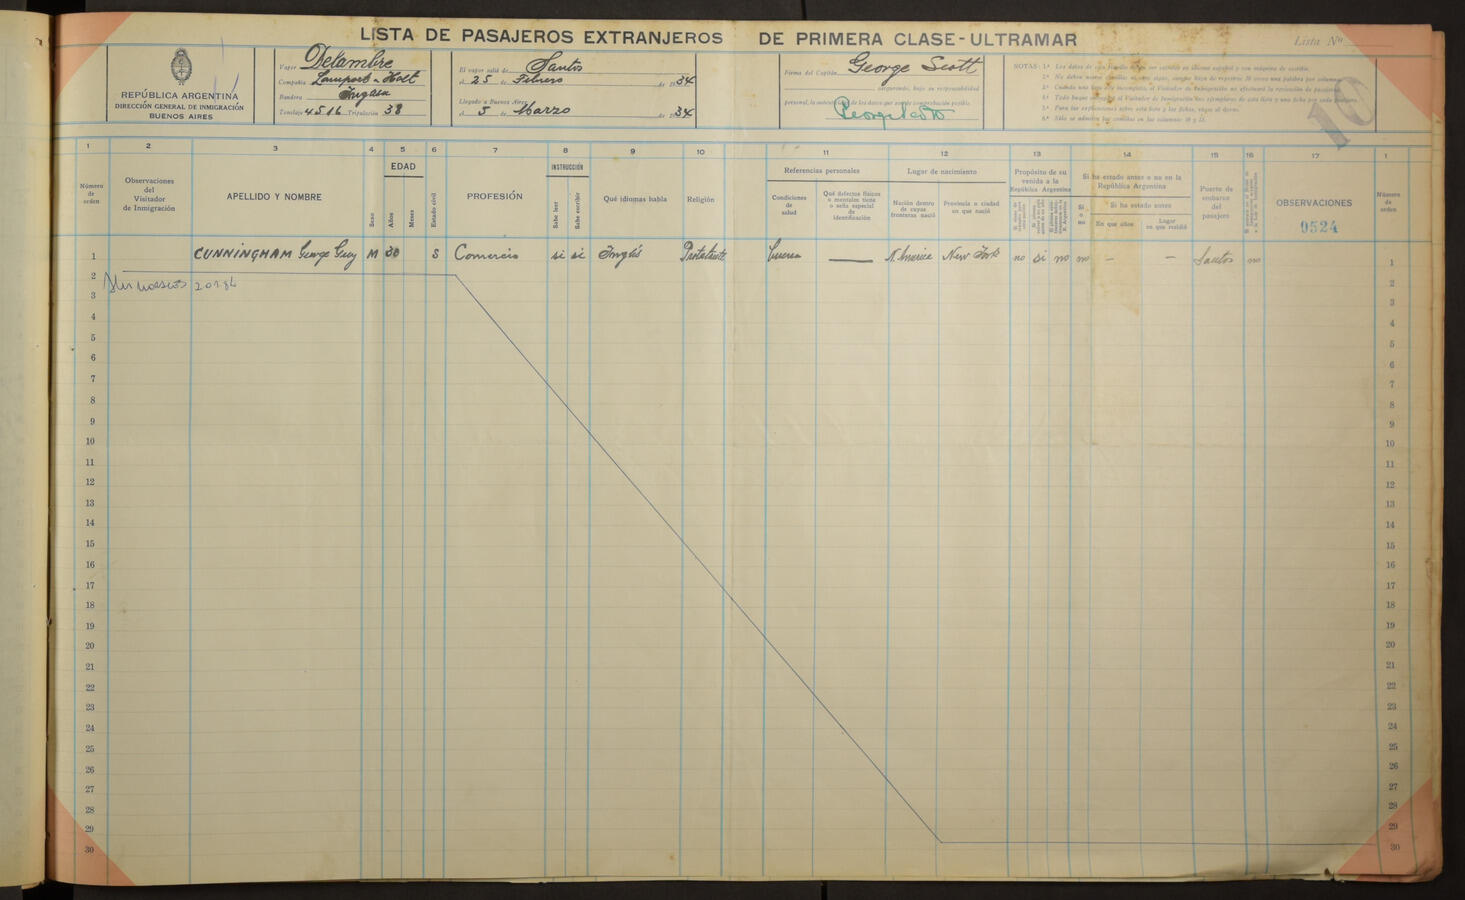 LISTA DE PASAJEROS EXTRANJEROS DE PRIMERA CLASE - ULTRAMAR
Lista Nº
REPÚBLICA ARGENTINA
DIRECCIÓN GENERAL DE INMIGRACIÓN
BUENOS AIRES
Vapor Delambre
Compañía Lamport & Holt
Bandera Inglesa
Tonelaje 4516 Tripulación 38
El vapor salió de Santos
el 25 de Febrero de 1934
Llegado a Buenos Aires
el 5 de Marzo de 1934
Firma del Capitán George Scott
George Scott
NOTAS:
10
1 2 3 4 5 6 7 8 9 10 11 12 13 14 15 16 17 1
Número de orden
Observaciones del Visitador de Inmigración
APELLIDO Y NOMBRE
Sexo
EDAD
Años
Meses
Estado civil
PROFESIÓN
INSTRUCCIÓN
Sabe leer
Sabe escribir
Qué idiomas habla
Religión
Referencias personales
Condiciones de salud
Qué defectos físicos o mentales tiene o seña especial de identificación
Lugar de nacimiento
Nación dentro de cuyas fronteras nació
Provincia o ciudad en que nació
Propósito de su venida a la República Argentina
Si ha estado antes o no en la República Argentina
Si o no
Si ha estado antes
En que años
Lugar en que residió
Puerto de embarco del pasajero
OBSERVACIONES
0524
Número de orden
1 CUNNINGHAM George M 30 S Comercio si si Inglés Protestante Buena — N. America New York no si no no — — Santos no 1
2 2
3 20186 3
4 4
5 5
6 6
7 7
8 8
9 9
10 10
11 11
12 12
13 13
14 14
15 15
16 16
17 17
18 18
19 19
20 20
21 21
22 22
23 23
24 24
25 25
26 26
27 27
28 28
29 29
30 30